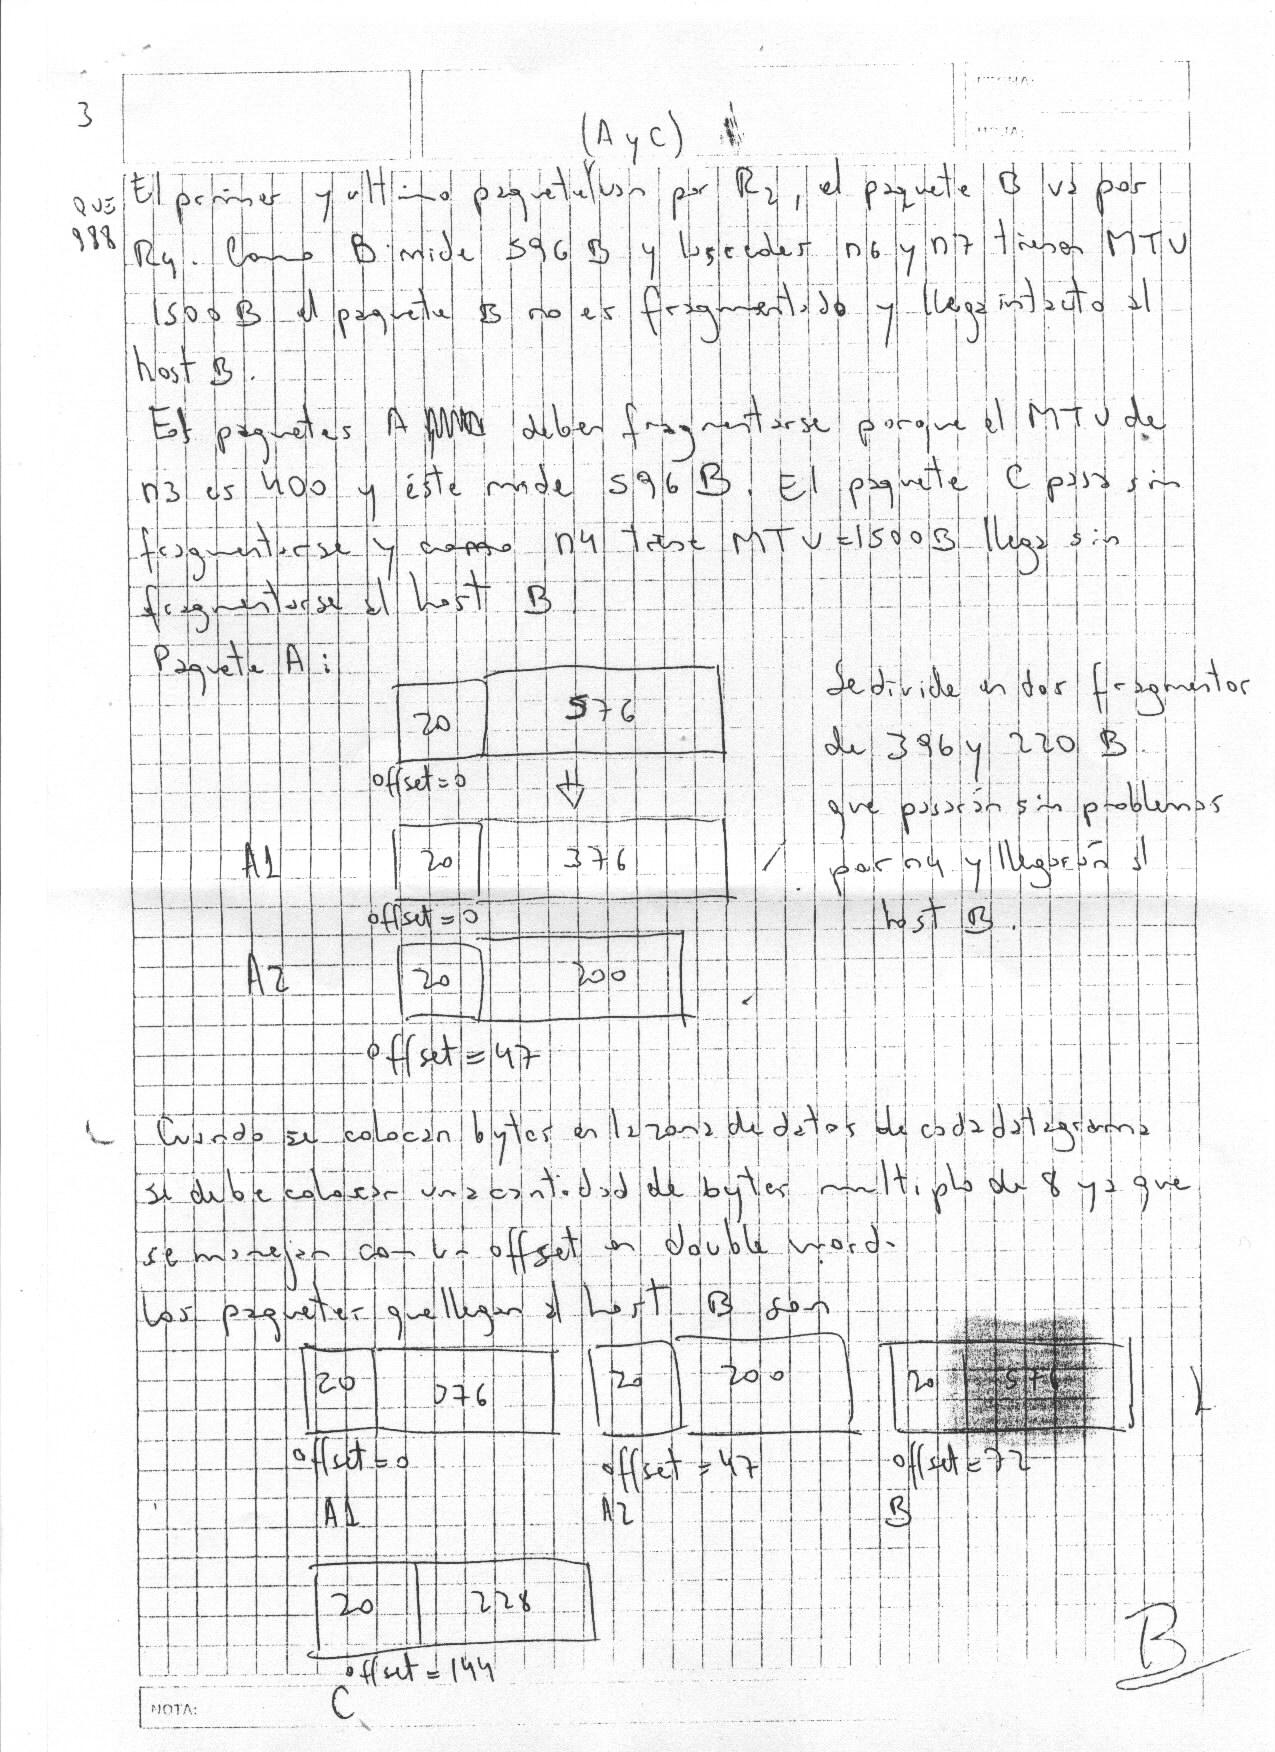 3
(A y C)
El primer y ultimo paquete van por R2, el paquete B va por
R4. Como B mide 596 B y las redes n6 y n7 tienen MTU
1500 B el paquete B no es fragmentado y llega intacto al
host B.
paquetes A deben fragmentarse porque el MTU de
n3 es 400 y éste mide 596 B. El paquete C pasa sin
fragmentarse y como n4 tiene MTU = 1500 B llega sin
fragmentarse al host B
Paquete A:
20 576
offset = 0
Se divide en dos fragmentos
de 396 y 220 B.
que pasarán sin problemas
por n4 y llegarán al
host B.
A1 20 376
offset = 0
A2 20 200
offset = 47
Cuando se colocan bytes en la zona de datos de cada datagrama
se debe colocar una cantidad de bytes multiplo de 8 ya que
se manejan con un offset en double word.
Los paquetes que llegan al host B son
20 376 20 200 20 576
offset = 0 offset = 47 offset = 72
A1 A2 B
20 228
offset = 144
C
B
NOTA: